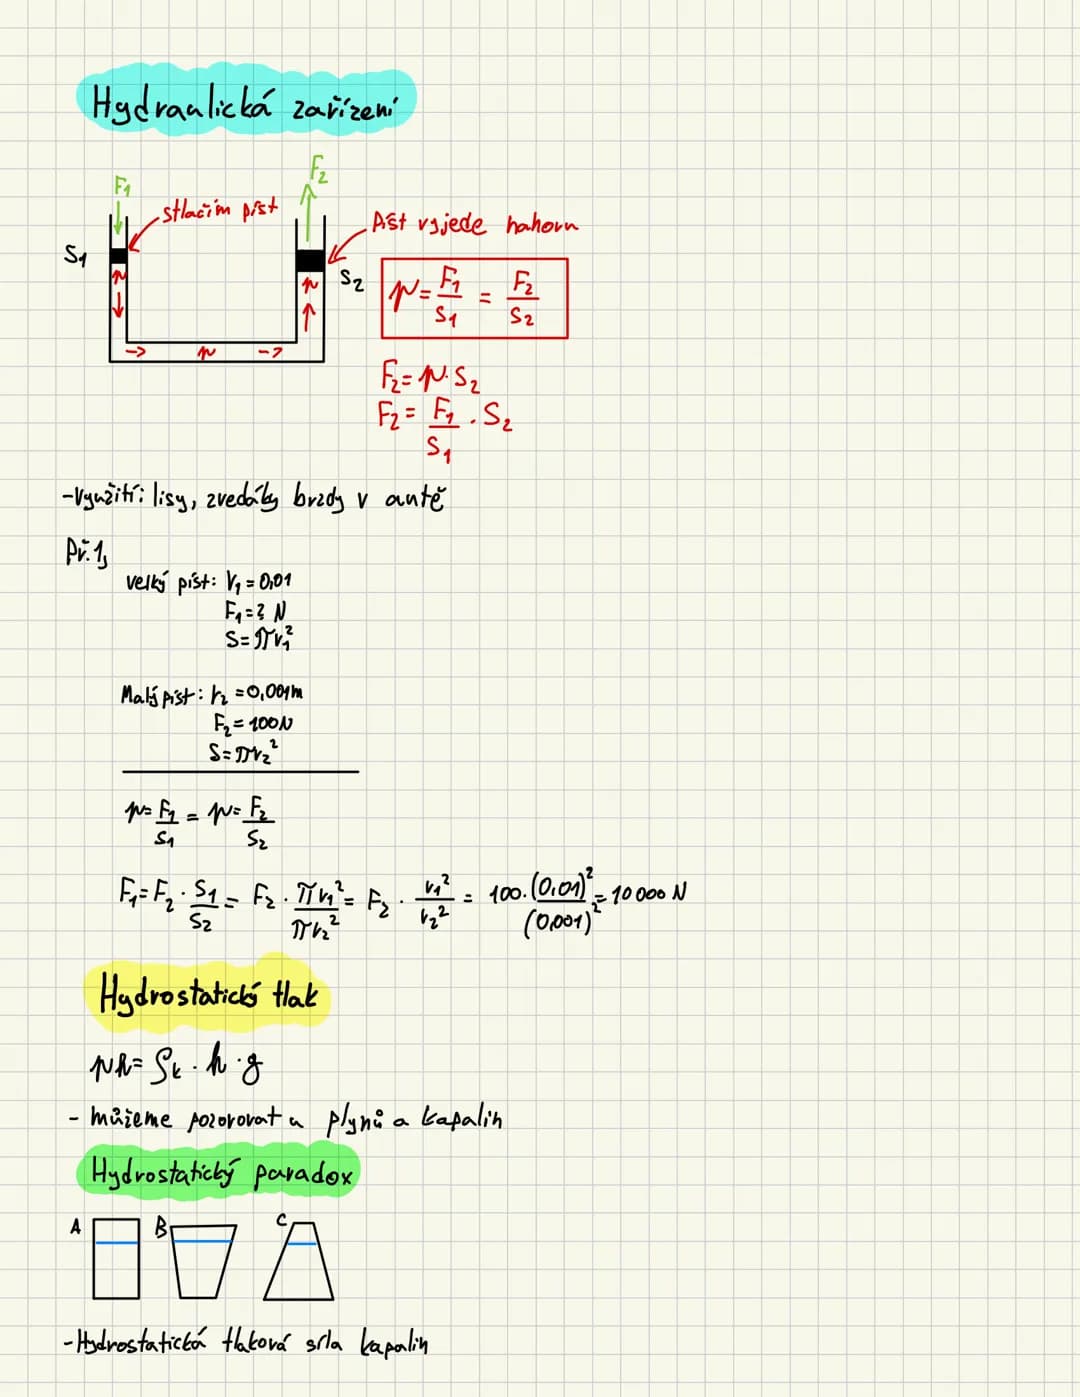 Hydraulická zařízení
F₁
F₂
stlačím píst
Píst vyjede nahoru
S₁
S₂
p = F₁/S₁ = F₂/S₂
p
p
-> p ->
F₂ = p · S₂
F₂ = F₁/S₁ · S₂
- Využití: lisy, zvedáky brzdy v autě
Př. 1,
velký píst: r₁ = 0,01
F₁ = ? N
S = πr₁²
Malý píst: r₂ = 0,001m
F₂ = 100N
S = πr₂²
p = F₁/S₁ = p = F₂/S₂
F₁ = F₂ · S₁/S₂ = F₂ · πr₁²/πr₂² = F₂ · r₁²/r₂² = 100 · (0,01)²/(0,001)² = 10 000 N
Hydrostatický tlak
ph = ρₖ · h · g
- můžeme pozorovat u plynů a kapalin
Hydrostatický paradox
A B C
- Hydrostatická tlaková síla kapalin